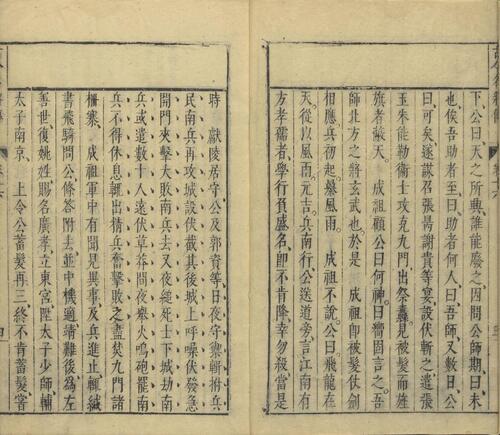 下公曰天之所興誰能廢之四問公師期曰未
也俟吾助者至曰助者何人曰吾師又數日公
曰可矣遂謀召張昺謝貴等宴設伏斬之遣張
玉朱能勒衛士攻克九門出祭纛見被髮而旌
旗者蔽天　成祖顧公曰何神曰嚮固言之吾
師北方之將玄武也於是　成祖即被髮仗劍
相應兵初起暴風雨　成祖不說公曰飛龍在
天從以風雨元吉兵南行公送道旁言江南有
方孝孺者學行負盛名即不肯降幸勿殺當是
時　獻陵居守公及郭資等日夜守禦輯拊兵
民南兵再攻城設伏截其後城上呼噪伏發急
開門夾擊大敗南兵去又夜縋死士下城劫南
兵或遣數十人遠伏草莽間夜燎火鳴砲罷南
兵不得休息輒出精兵奮擊敗之盡奪九門諸
柵寨　成祖軍中有聞見異事及兵進止輒緘
書飛騎問公條答附去並中機適靖難後為左
善世復姚姓賜名廣孝立東宮陞太子少師輔
太子南京　上令公蓄髮再三終不肯蓄髮嘗